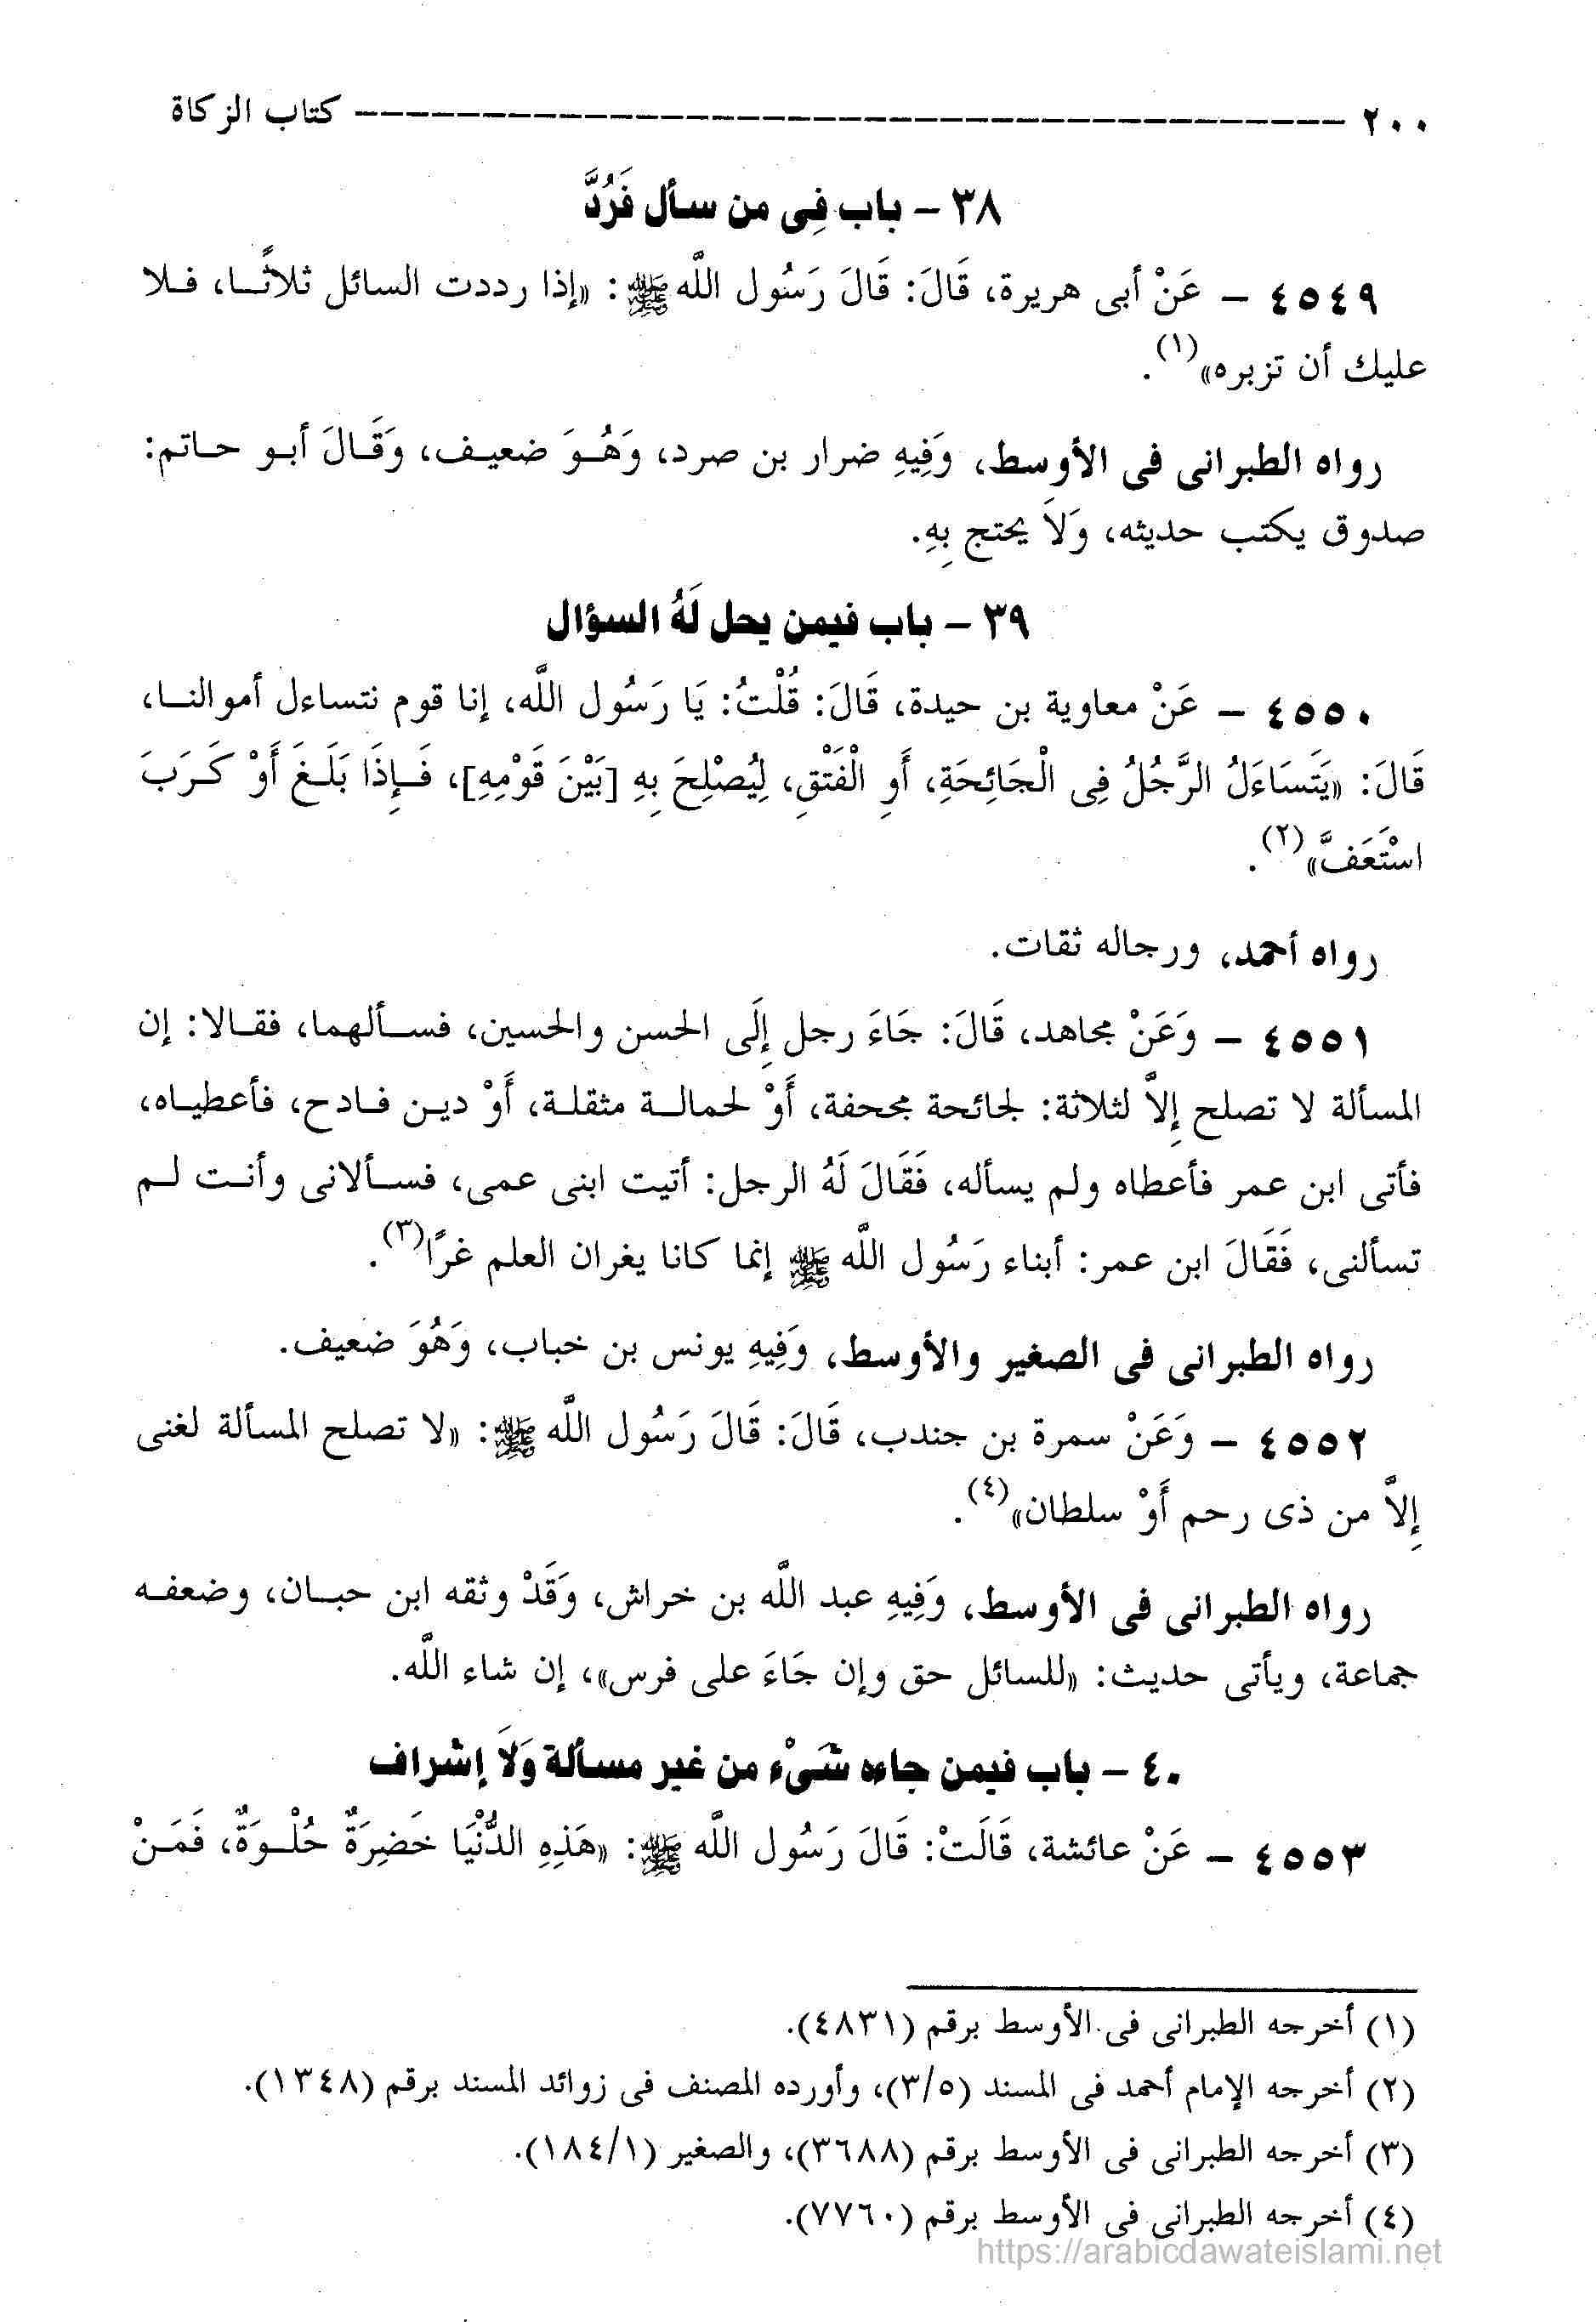 ٢٠٠ ــــــــــــــــــــــــــــــــــــــــ كتاب الزكاة
٣٨ – باب فِى من سأل فَرُدَّ
٤٥٤٩ – عَنْ أبى هريرة، قَالَ: قَالَ رَسُول اللَّه ﷺ: «إذا رددت السائل ثلاثًا، فلا
عليك أن تزبره»(١).
رواه الطبرانى فى الأوسط، وَفِيهِ ضرار بن صرد، وَهُوَ ضعيف، وَقَالَ أبو حاتم:
صدوق يكتب حديثه، وَلاَ يحتج بِهِ.
٣٩ – باب فيمن يحل لَهُ السؤال
٤٥٥٠ – عَنْ معاوية بن حيدة، قَالَ: قُلْتُ: يَا رَسُول اللَّه، إنا قوم نتساءل أموالنا،
قَالَ: «يَتَسَاءَلُ الرَّجُلُ فِى الْجَائِحَةِ، أَوِ الْفَتْقِ، لِيُصْلِحَ بِهِ [بَيْنَ قَوْمِهِ]، فَإِذَا بَلَغَ أَوْ كَرَبَ
اسْتَعَفَّ»(٢).
رواه أحمد، ورجاله ثقات.
٤٥٥١ – وَعَنْ مجاهد، قَالَ: جَاءَ رجل إِلَى الحسن والحسين، فسألهما، فقالا: إن
المسألة لا تصلح إِلاَّ لثلاثة: لجائحة مجحفة، أَوْ لحمالة مثقلة، أَوْ دين فادح، فأعطياه،
فأتى ابن عمر فأعطاه ولم يسأله، فَقَالَ لَهُ الرجل: أتيت ابنى عمى، فسألانى وأنت لم
تسألنى، فَقَالَ ابن عمر: أبناء رَسُول اللَّه ﷺ إنما كانا يغران العلم غرًا(٣).
رواه الطبرانى فى الصغير والأوسط، وَفِيهِ يونس بن خباب، وَهُوَ ضعيف.
٤٥٥٢ – وَعَنْ سمرة بن جندب، قَالَ: قَالَ رَسُول اللَّه ﷺ: «لا تصلح المسألة لغنى
إِلاَّ من ذى رحم أَوْ سلطان»(٤).
رواه الطبرانى فى الأوسط، وَفِيهِ عبد اللَّه بن خراش، وَقَدْ وثقه ابن حبان، وضعفه
جماعة، ويأتى حديث: «للسائل حق وإن جَاءَ على فرس»، إن شاء اللَّه.
٤٠ – باب فيمن جاءه شَىْء من غير مسألة وَلاَ إشراف
٤٥٥٣ – عَنْ عائشة، قَالَتْ: قَالَ رَسُول اللَّه ﷺ: «هَذِهِ الدُّنْيَا خَضِرَةٌ حُلْوَةٌ، فَمَنْ
(١) أخرجه الطبرانى فى الأوسط برقم (٤٨٣١).
(٢) أخرجه الإمام أحمد فى المسند (٣/٥)، وأورده المصنف فى زوائد المسند برقم (١٣٤٨).
(٣) أخرجه الطبرانى فى الأوسط برقم (٣٦٨٨)، والصغير (١٨٤/١).
(٤) أخرجه الطبرانى فى الأوسط برقم (٧٧٦٠).
https://arabicdawateislami.net